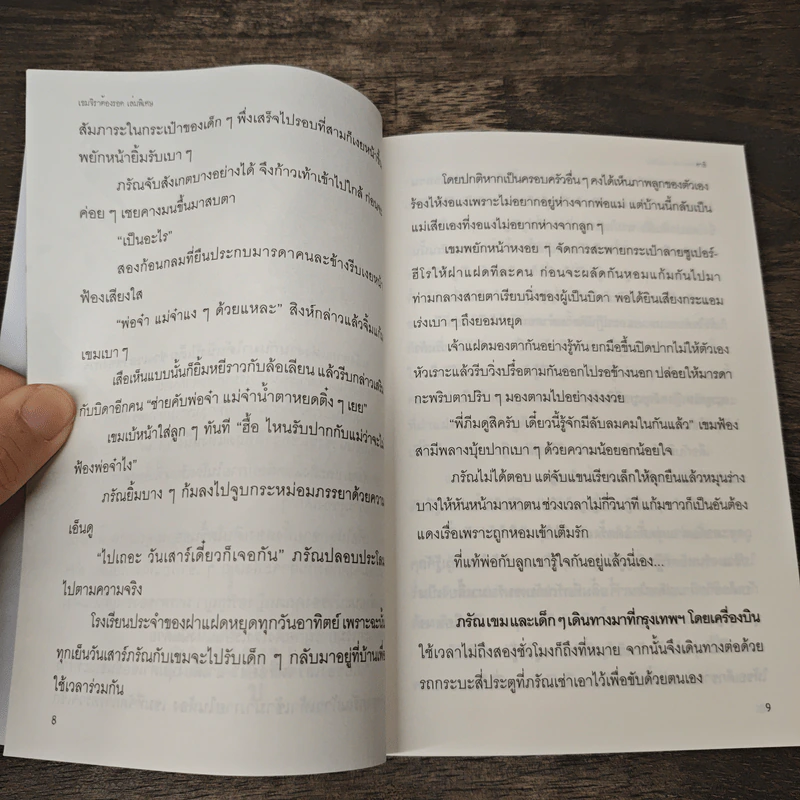 เขมจิราต้องรอด เล่มพิเศษ
สัมภาระในกระเป๋าของเด็ก ๆ พึ่งเสร็จไปรอบที่สามก็เงยหน้าขึ้น
พยักหน้ายิ้มรับเบา ๆ
ภรัณจับสังเกตบางอย่างได้ จึงก้าวเท้าเข้าไปใกล้ ก่อน
ค่อย ๆ เชยคางมนขึ้นมาสบตา
“เป็นอะไร”
สองก้อนกลมที่ยืนประกบมารดาคนละข้างรีบเงยหน้า
ฟ้องเสียงใส
“พ่อจ๋า แม่จ๋าแง ๆ ด้วยแหละ” สิงห์กล่าวแล้วจิ้มแก้ม
เขมเบา ๆ
เสือเห็นแบบนั้นก็ยิ้มหยีราวกับล้อเลียน แล้วรีบกล่าวเสริม
กับบิดาอีกคน “ช่ายคับพ่อจ๋า แม่จ๋าน้ำตาหยดติ๋ง ๆ เยย”
เขมเบ้หน้าใส่ลูก ๆ ทันที “ฮื้อ ไหนรับปากกับแม่ว่าจะไม่
ฟ้องพ่อจ๋าไง”
ภรัณยิ้มบาง ๆ ก้มลงไปจูบกระหม่อมภรรยาด้วยความ
เอ็นดู
“ไปเถอะ วันเสาร์เดี๋ยวก็เจอกัน” ภรัณปลอบประโลม
ไปตามความจริง
โรงเรียนประจำของฝาแฝดหยุดทุกวันอาทิตย์ เพราะฉะนั้น
ทุกเย็นวันเสาร์ภรัณกับเขมจะไปรับเด็ก ๆ กลับมาอยู่ที่บ้านเพื่อ
ใช้เวลาร่วมกัน
8
โดยปกติหากเป็นครอบครัวอื่น ๆ คงได้เห็นภาพลูกของตัวเอง
ร้องไห้งอแงเพราะไม่อยากอยู่ห่างจากพ่อแม่ แต่บ้านนี้กลับเป็น
แม่เสียเองที่งอแงไม่อยากห่างจากลูก ๆ
เขมพยักหน้าหงอย ๆ จัดการสะพายกระเป๋าลายซูเปอร์-
ฮีโรให้ฝาแฝดทีละคน ก่อนจะผลัดกันหอมแก้มกันไปมา
ท่ามกลางสายตาเรียบนิ่งของผู้เป็นบิดา พอได้ยินเสียงกระแอม
เร่งเบา ๆ ถึงยอมหยุด
เจ้าแฝดมองตากันอย่างรู้ทัน ยกมือขึ้นปิดปากไม่ให้ตัวเอง
หัวเราะแล้วรีบวิ่งปรื๋อตามกันออกไปรอข้างนอก ปล่อยให้มารดา
กะพริบตาปริบ ๆ มองตามไปอย่างงงงวย
“พี่ภีมดูสิครับ เดี๋ยวนี้รู้จักมีลับลมคมในกันแล้ว” เขมฟ้อง
สามีพลางบุ้ยปากเบา ๆ ด้วยความน้อยอกน้อยใจ
ภรัณไม่ได้ตอบ แต่จับแขนเรียวเล็กให้ลุกยืนแล้วหมุนร่าง
บางให้หันหน้ามาหาตน ช่วงเวลาไม่กี่วินาที แก้มขาวก็เป็นอันต้อง
แดงเรื่อเพราะถูกหอมเข้าเต็มรัก
ที่แท้พ่อกับลูกเขารู้ใจกันอยู่แล้วนี่เอง...
ภรัณ เขม และเด็ก ๆ เดินทางมาที่กรุงเทพฯ โดยเครื่องบิน
ใช้เวลาไม่ถึงสองชั่วโมงก็ถึงที่หมาย จากนั้นจึงเดินทางต่อด้วย
รถกระบะสี่ประตูที่ภรัณเช่าเอาไว้เพื่อขับด้วยตนเอง
9